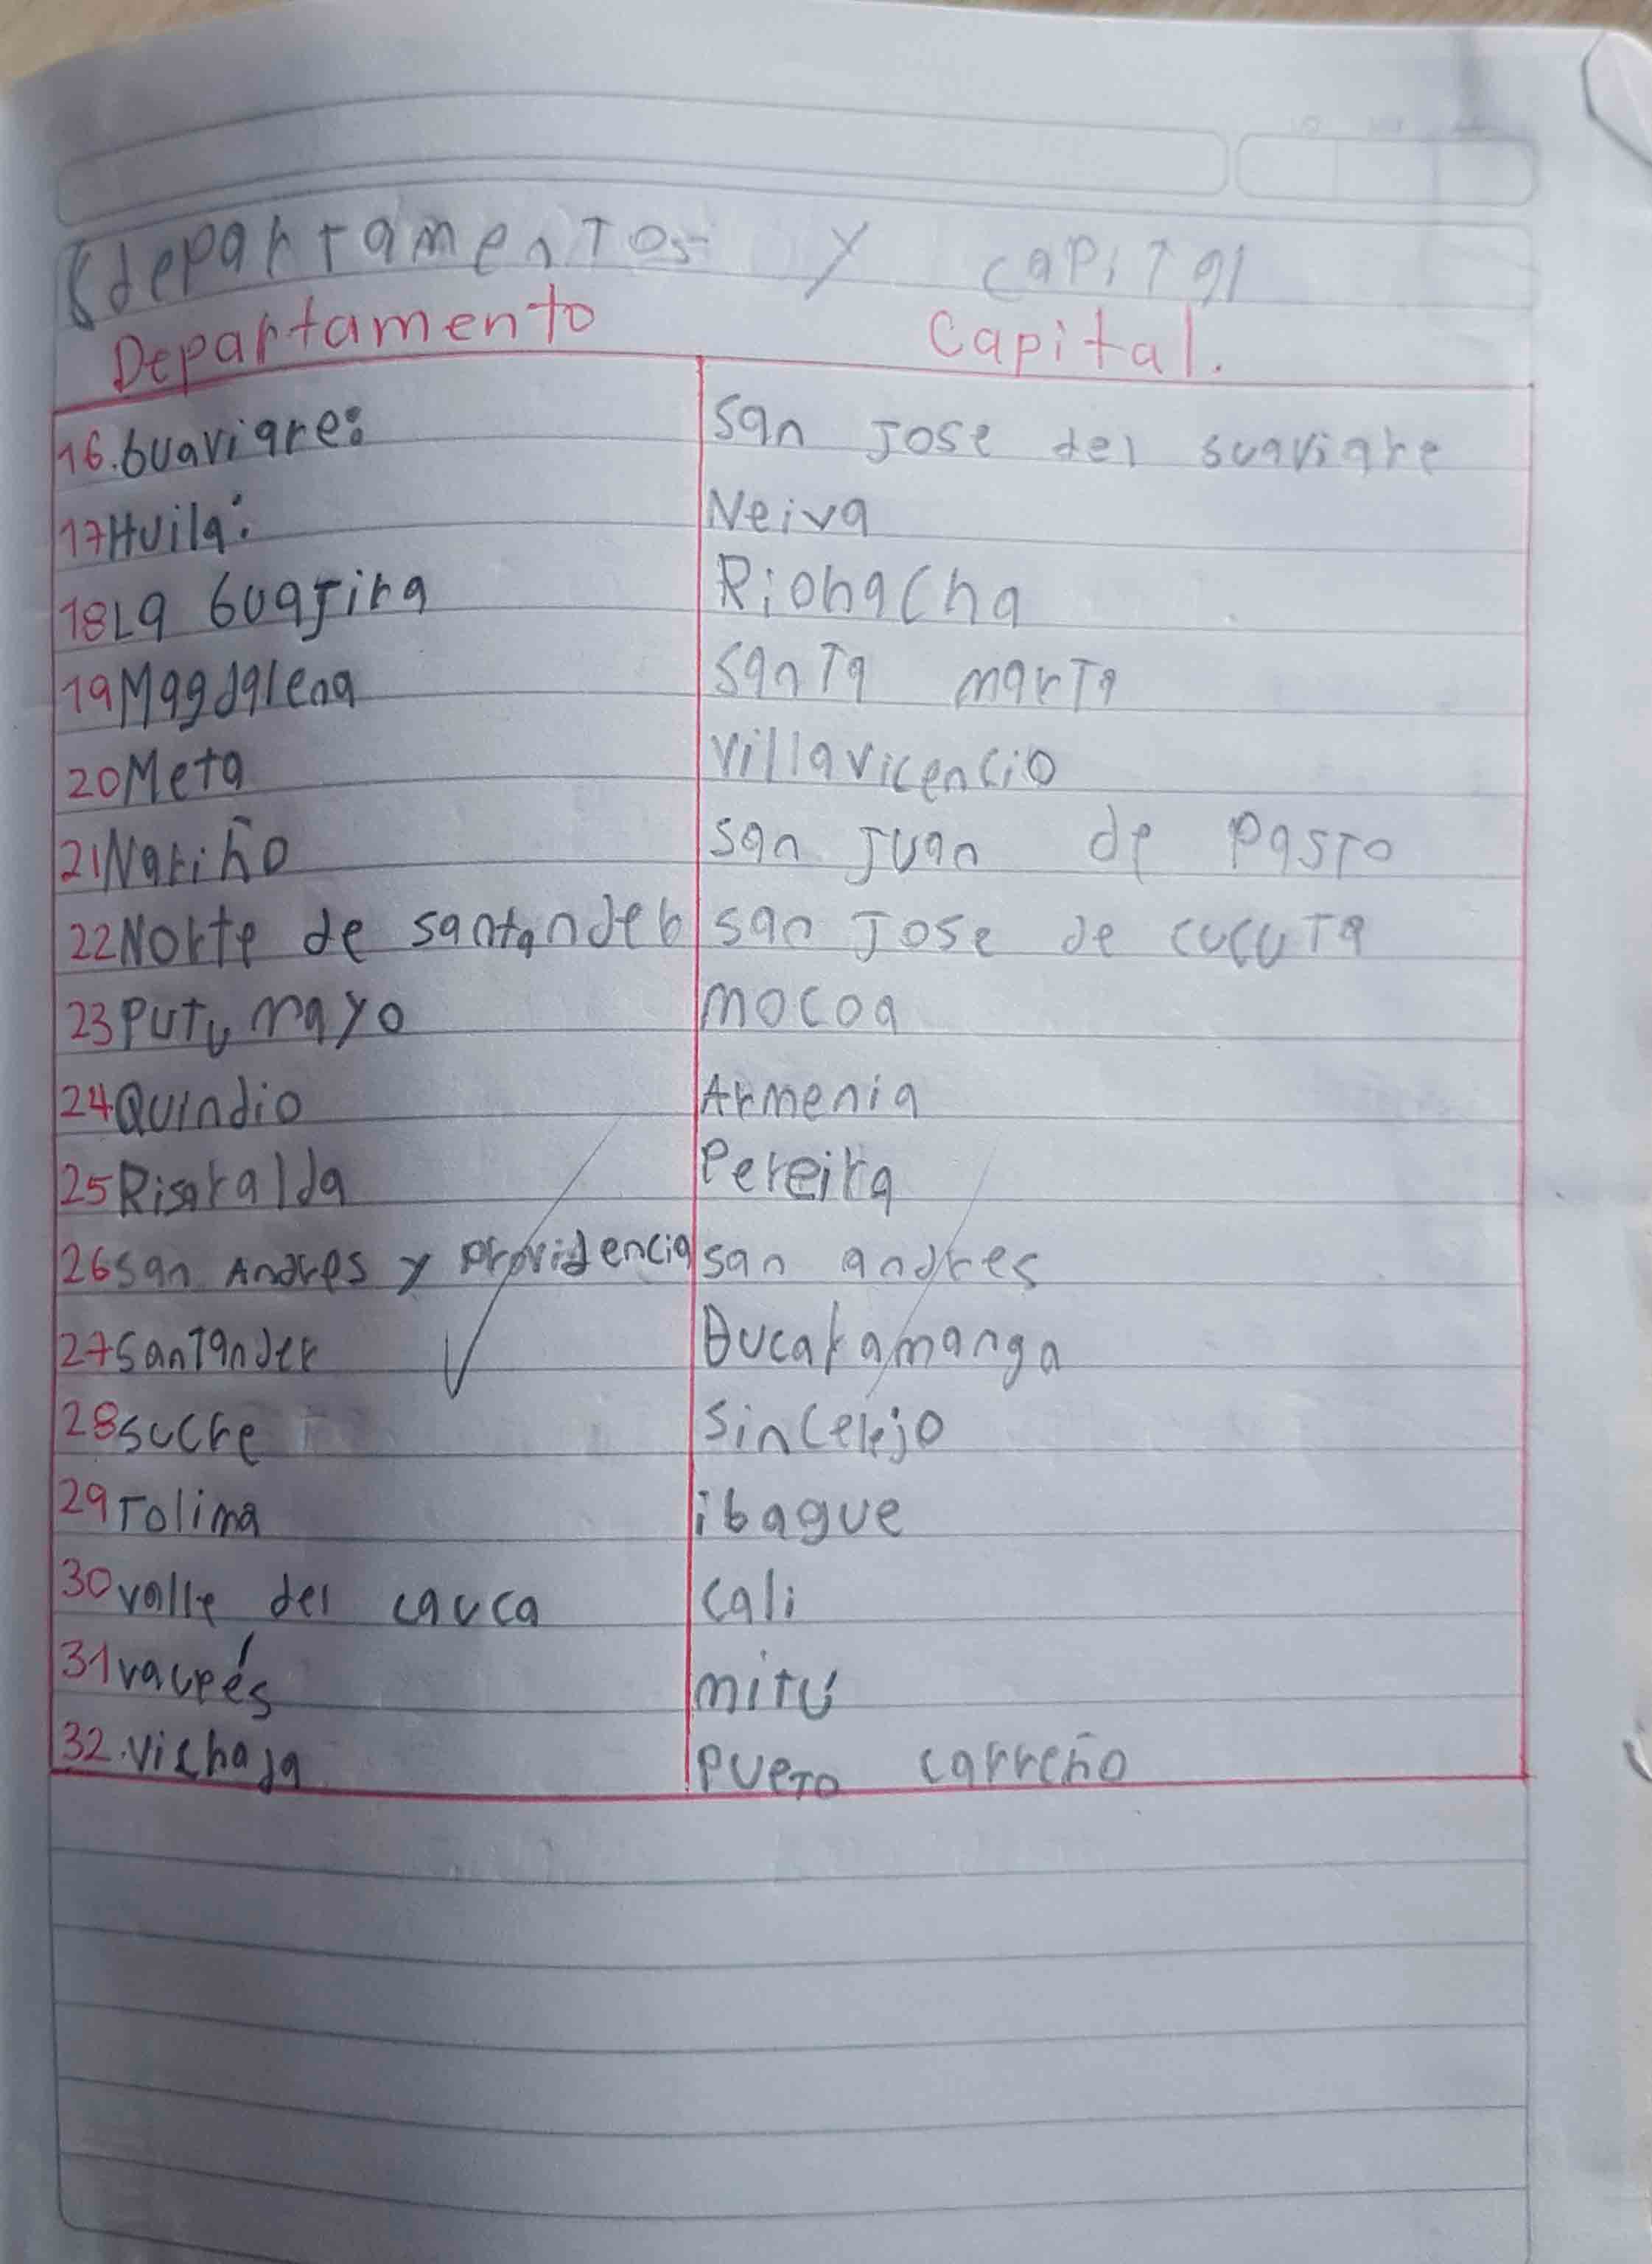 departamentos y capital
Departamento Capital.
16. Guaviare: san Jose del suaviare
17 Huila: Neiva
18 La Guajira Riohacha
19 Magdalena santa marta
20 Meta villavicencio
21 Nariño san Juan de Pasto
22 Norte de santander san Jose de cucuta
23 Putumayo mocoa
24 Quindio Armenia
25 Risaralda Pereira
26 san Andres y providencia san andres
27 Santander Bucaramanga
28 sucre sincelejo
29 Tolima ibague
30 valle del cauca cali
31 vaupés mitú
32. Vichada pueto carreño